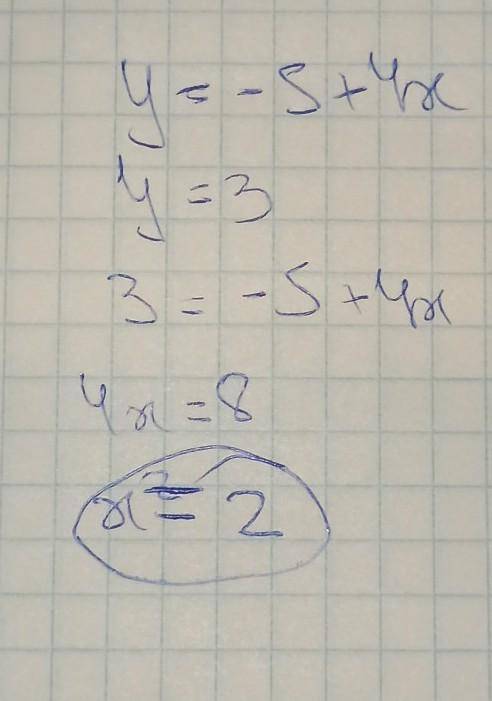 y = -5+4x
y = 3
3 = -5+4x
4x = 8
x = 2